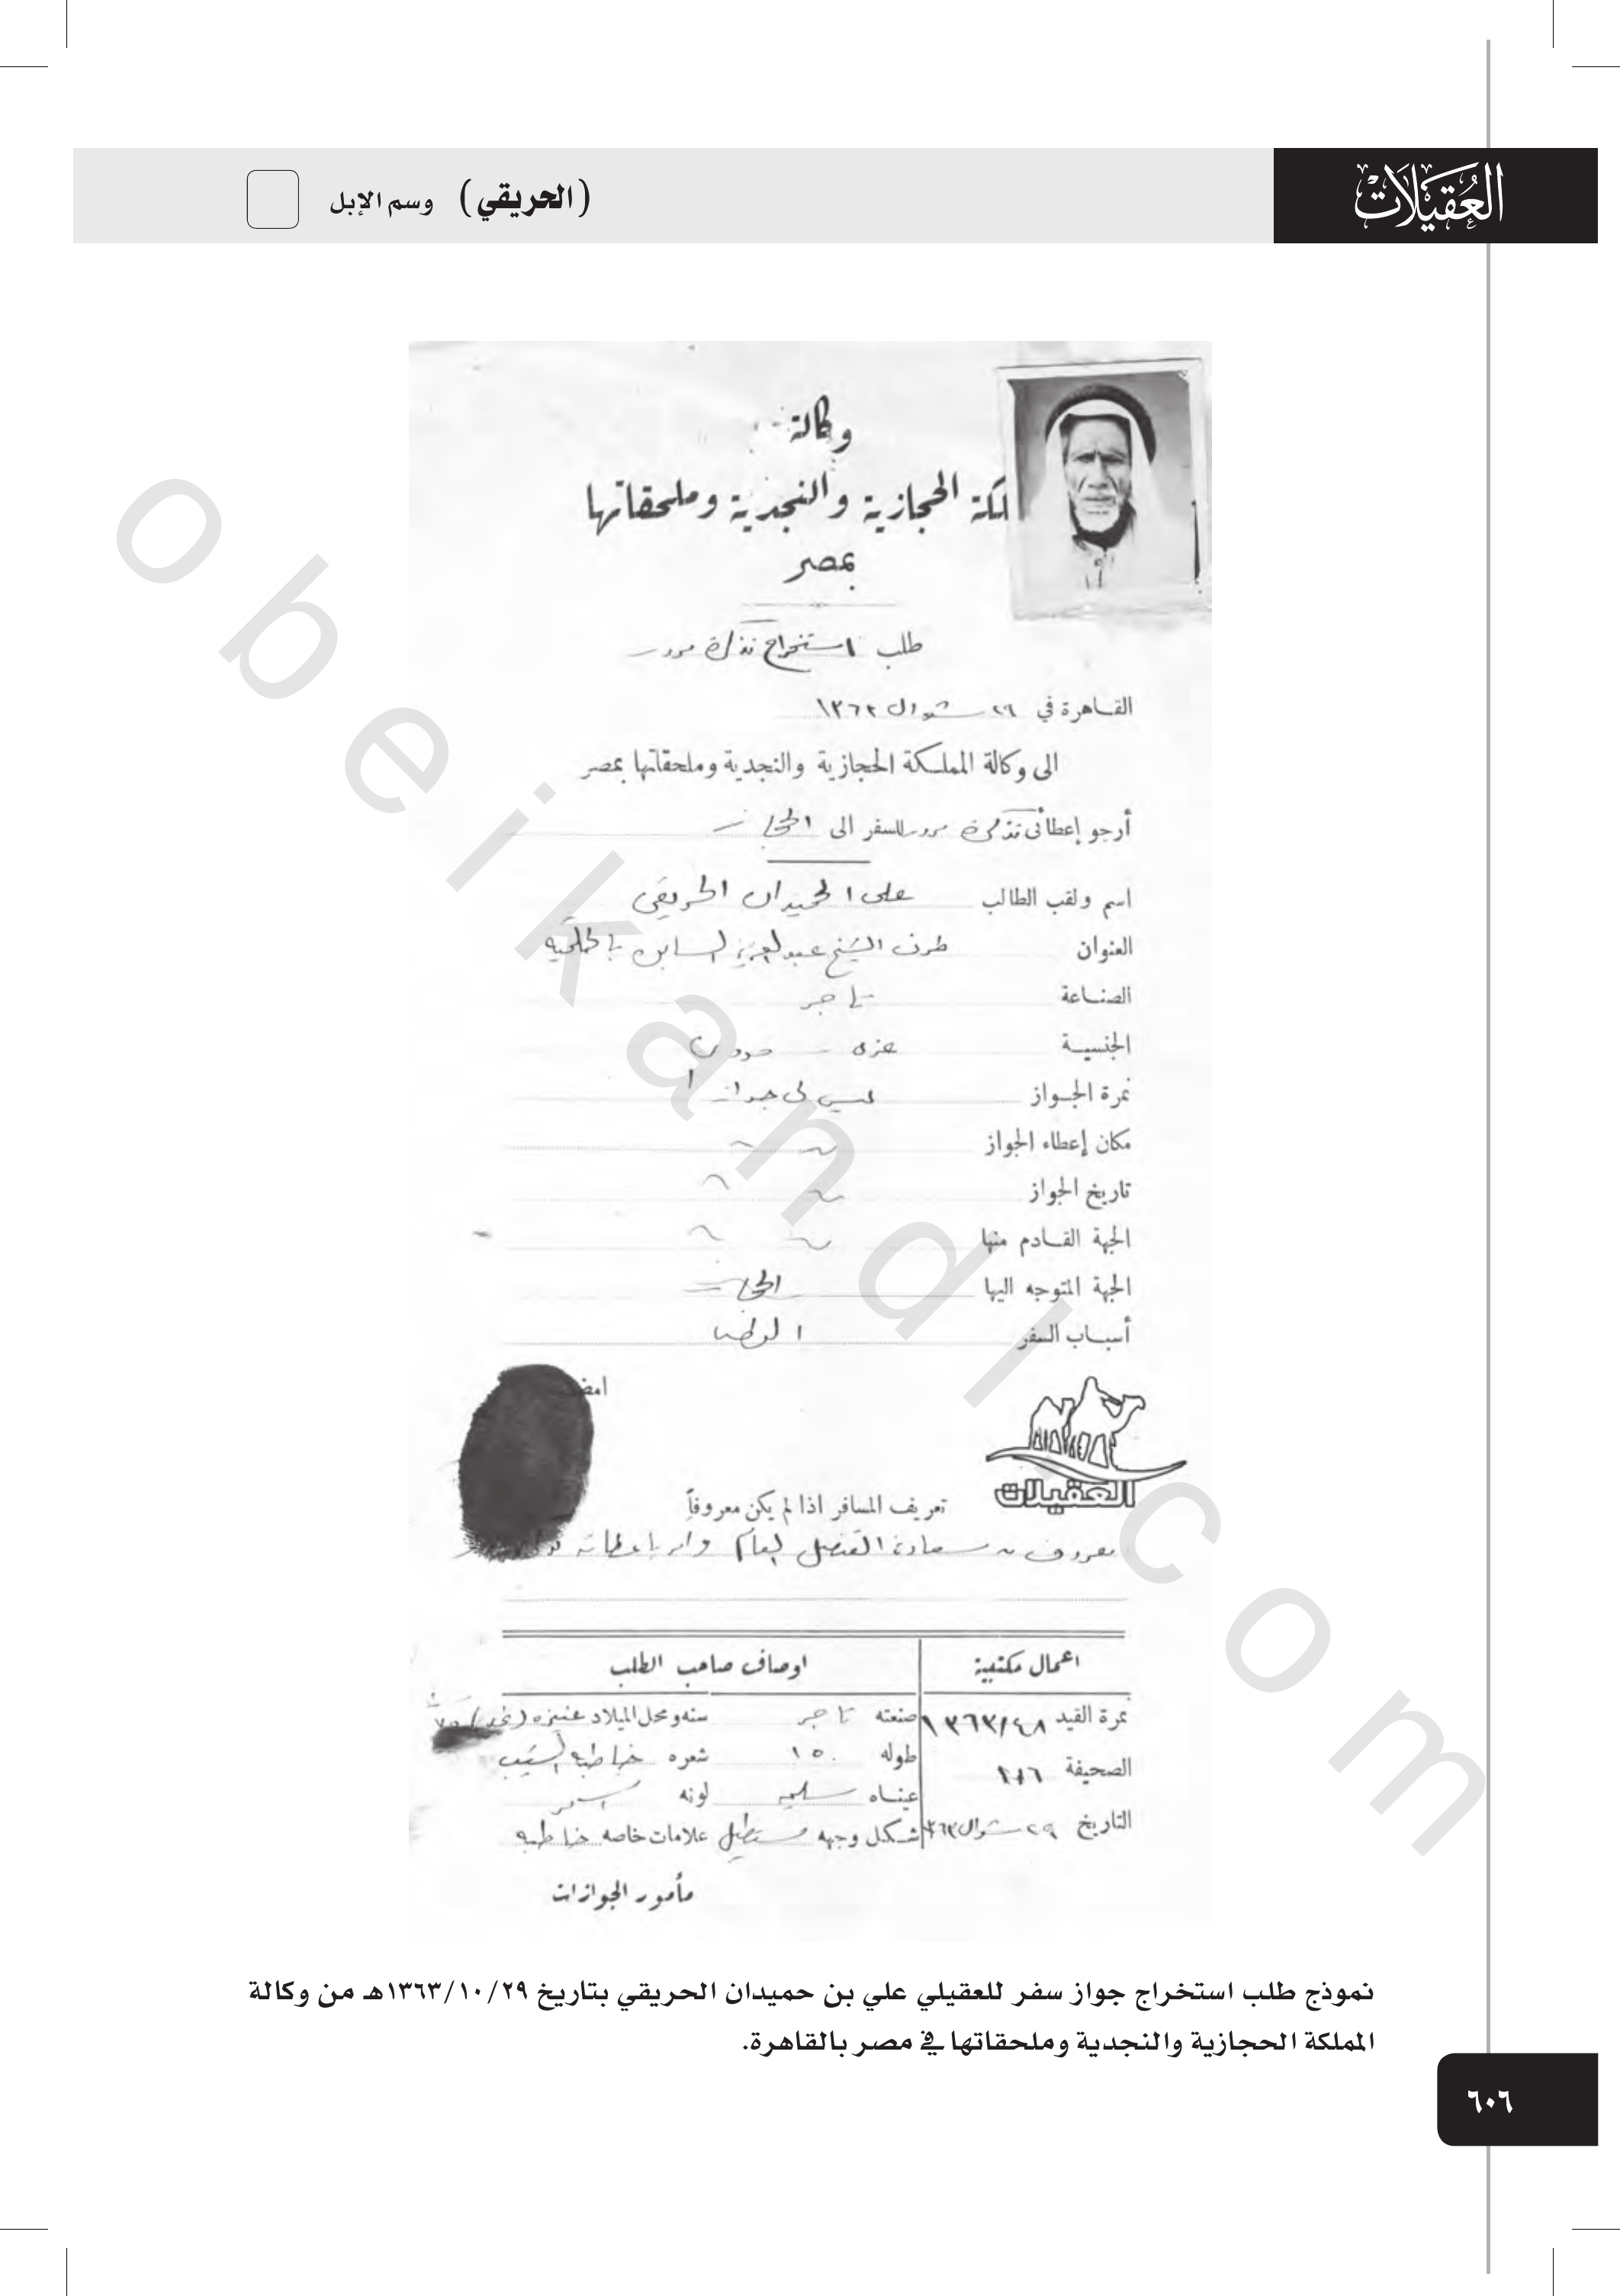 العُقيلات
(الحريقي) وسم الإبل
وكالة
لكة الحجازية والنجدية وملحقاتها
بمصر
طلب استخراج تذكرة مرور
القاهرة في ٢٩ شوال ١٣٦٣
الى وكالة المملكة الحجازية والنجدية وملحقاتها بمصر
أرجو إعطائى تذكرة مرور للسفر الى الحجاز
اسم ولقب الطالب على الحميدان الحريقى
العنوان طرف الشيخ عبدالعزيز
الصناعة تاجر
الجنسية
نمرة الجواز ليس لى جواز
مكان إعطاء الجواز
تاريخ الجواز
الجهة القادم منها
الجهة المتوجه اليها الحجاز
أسباب السفر
امض
العقيلات
تعريف المسافر اذا لم يكن معروفاً
معروف من سعادة القنصل العام وامر باعطائه
اعمال مكتبية اوصاف صاحب الطلب
نمرة القيد ١٣٦٣/٤٨ صنعته تاجر سنه ومحل الميلاد عنيزه (نجد) ٧٥
الصحيفة طوله ١٥٠ شعره
عيناه سليمه لونه اسمر
التاريخ ٢٩ شوال ٣٦٣ شكل وجهه مستطيل علامات خاصه
مأمور الجوازات
نموذج طلب استخراج جواز سفر للعقيلي علي بن حميدان الحريقي بتاريخ ١٣٦٣/١٠/٢٩هـ من وكالة
المملكة الحجازية والنجدية وملحقاتها في مصر بالقاهرة.
٦٠٦
obeikandl.com